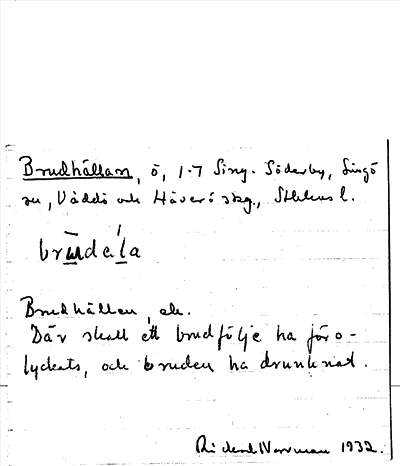 Brudhällan, ö, 1-7 Sing. Söderby, Singö
sn, Väddö och Häverö skg., Sthlms l.
brūdela
Brudhällen, ör.
Där skall ett brudfölje ha föro-
lyckats, och bruden ha drunknat.
Rickard Norrman 1932.